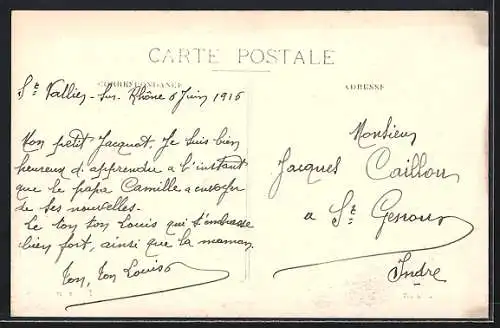 CARTE POSTALE
CORRESPONDANCE
ADRESSE
St Vallier-sur-Rhône 6 Juin 1916
Mon petit Jacquot. Je suis bien
heureux d'apprendre a l'instant
que le papa Camille a envoyer
de ses nouvelles.
Le ton ton Louis qui t'embrasse
bien fort, ainsi que la maman.
Ton, ton Louis
Monsieur
Jacques Caillou
a St Genou
Indre